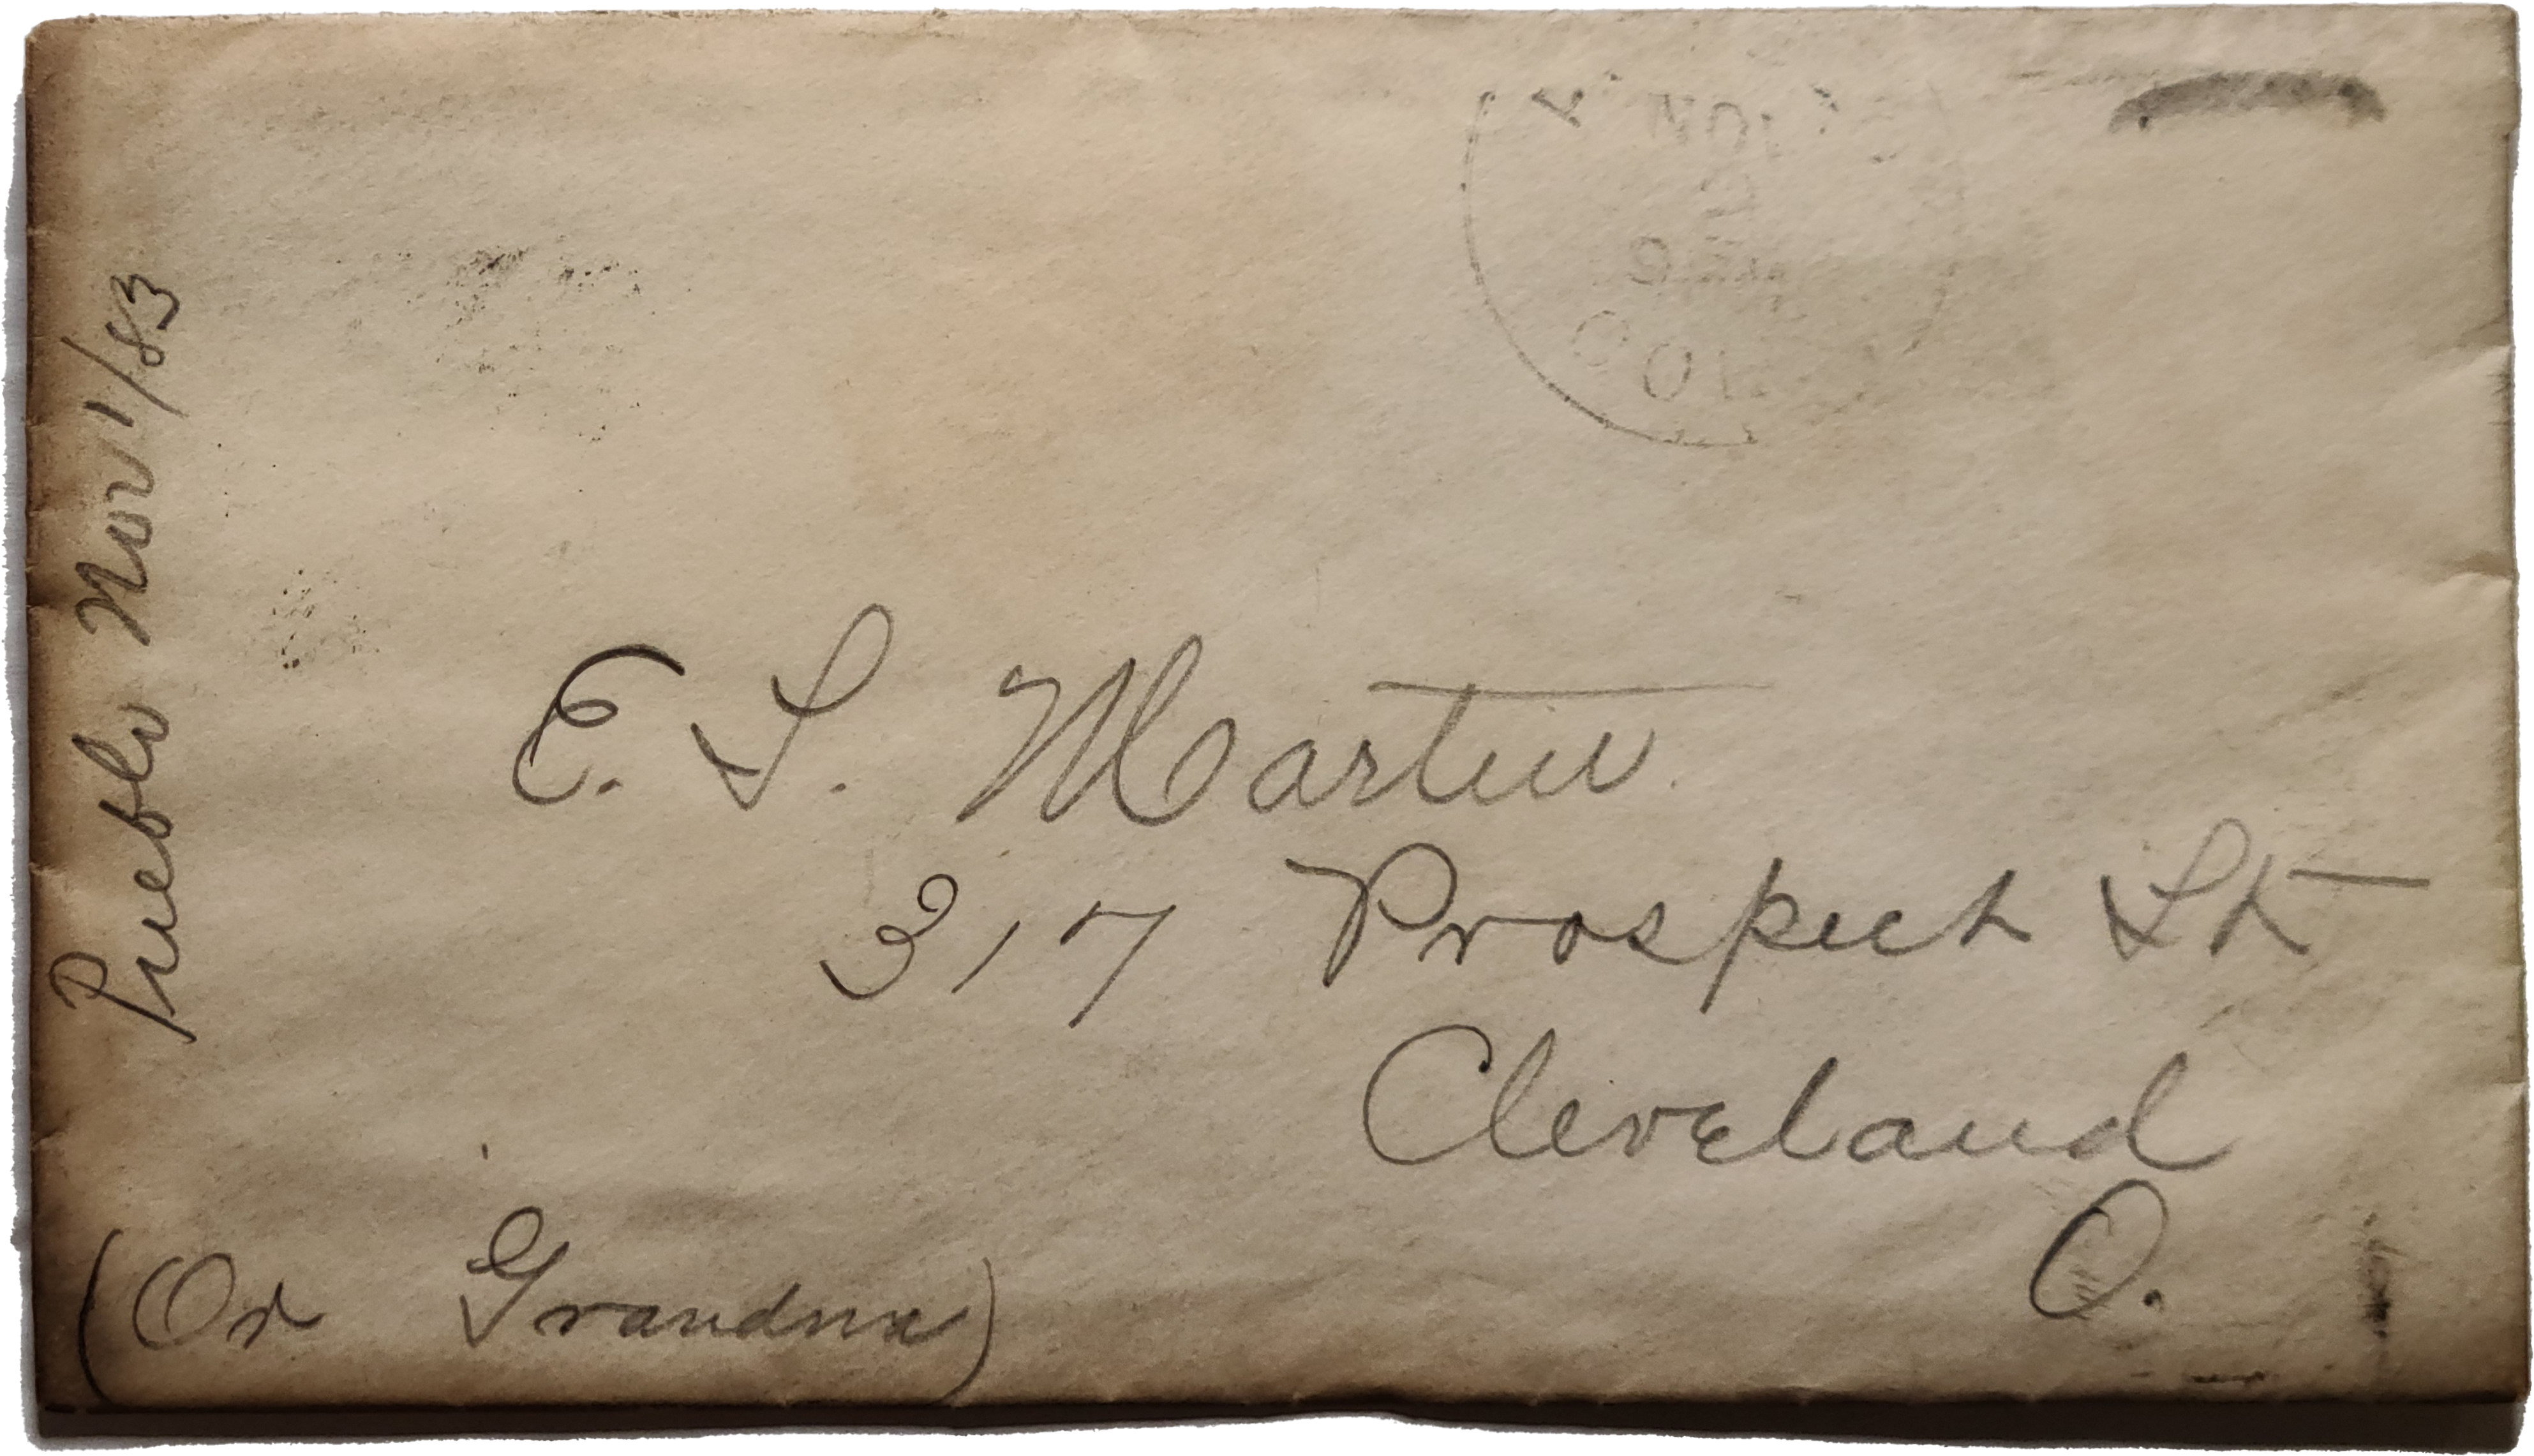 Pueblo Nov 1/83
NOV
2
COL
E. S. Martin
317 Prospect St
Cleveland
O.
(Or Grandma)